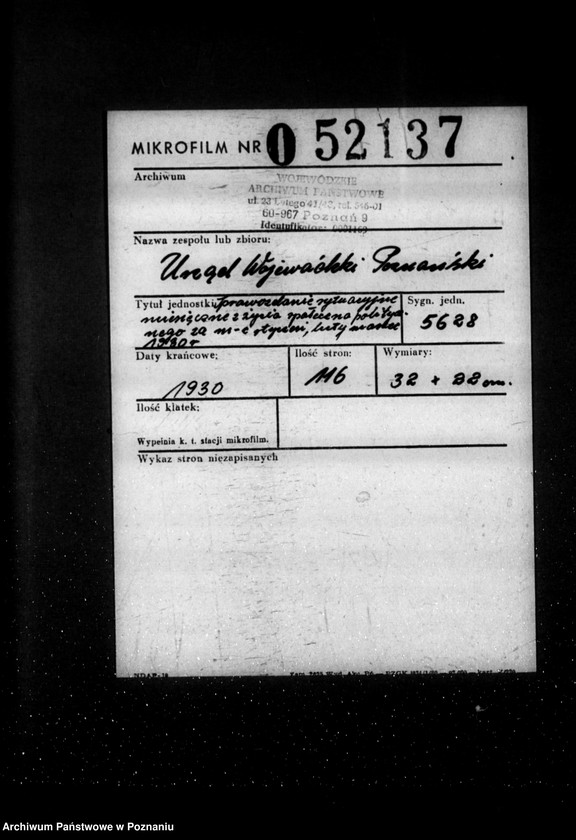 MIKROFILM NR 0 52137
Archiwum
WOJEWÓDZKIE
ARCHIWUM PAŃSTWOWE
ul. 23 Lutego 41/43, tel. 546-01
60-967 Poznań 9
Identyfikator:
Nazwa zespołu lub zbioru:
Urząd Wojewódzki Poznański
Tytuł jednostki: Sprawozdanie sytuacyjne
miesięczne z życia społeczno politycz
nego za m-c styczeń, luty marzec
1930 r
Sygn. jedn.
5628
Daty krańcowe:
1930
Ilość stron:
116
Wymiary:
32 + 22 cm.
Ilość klatek:
Wypełnia k. t. stacji mikrofilm.
Wykaz stron niezapisanych
Archiwum Państwowe w Poznaniu